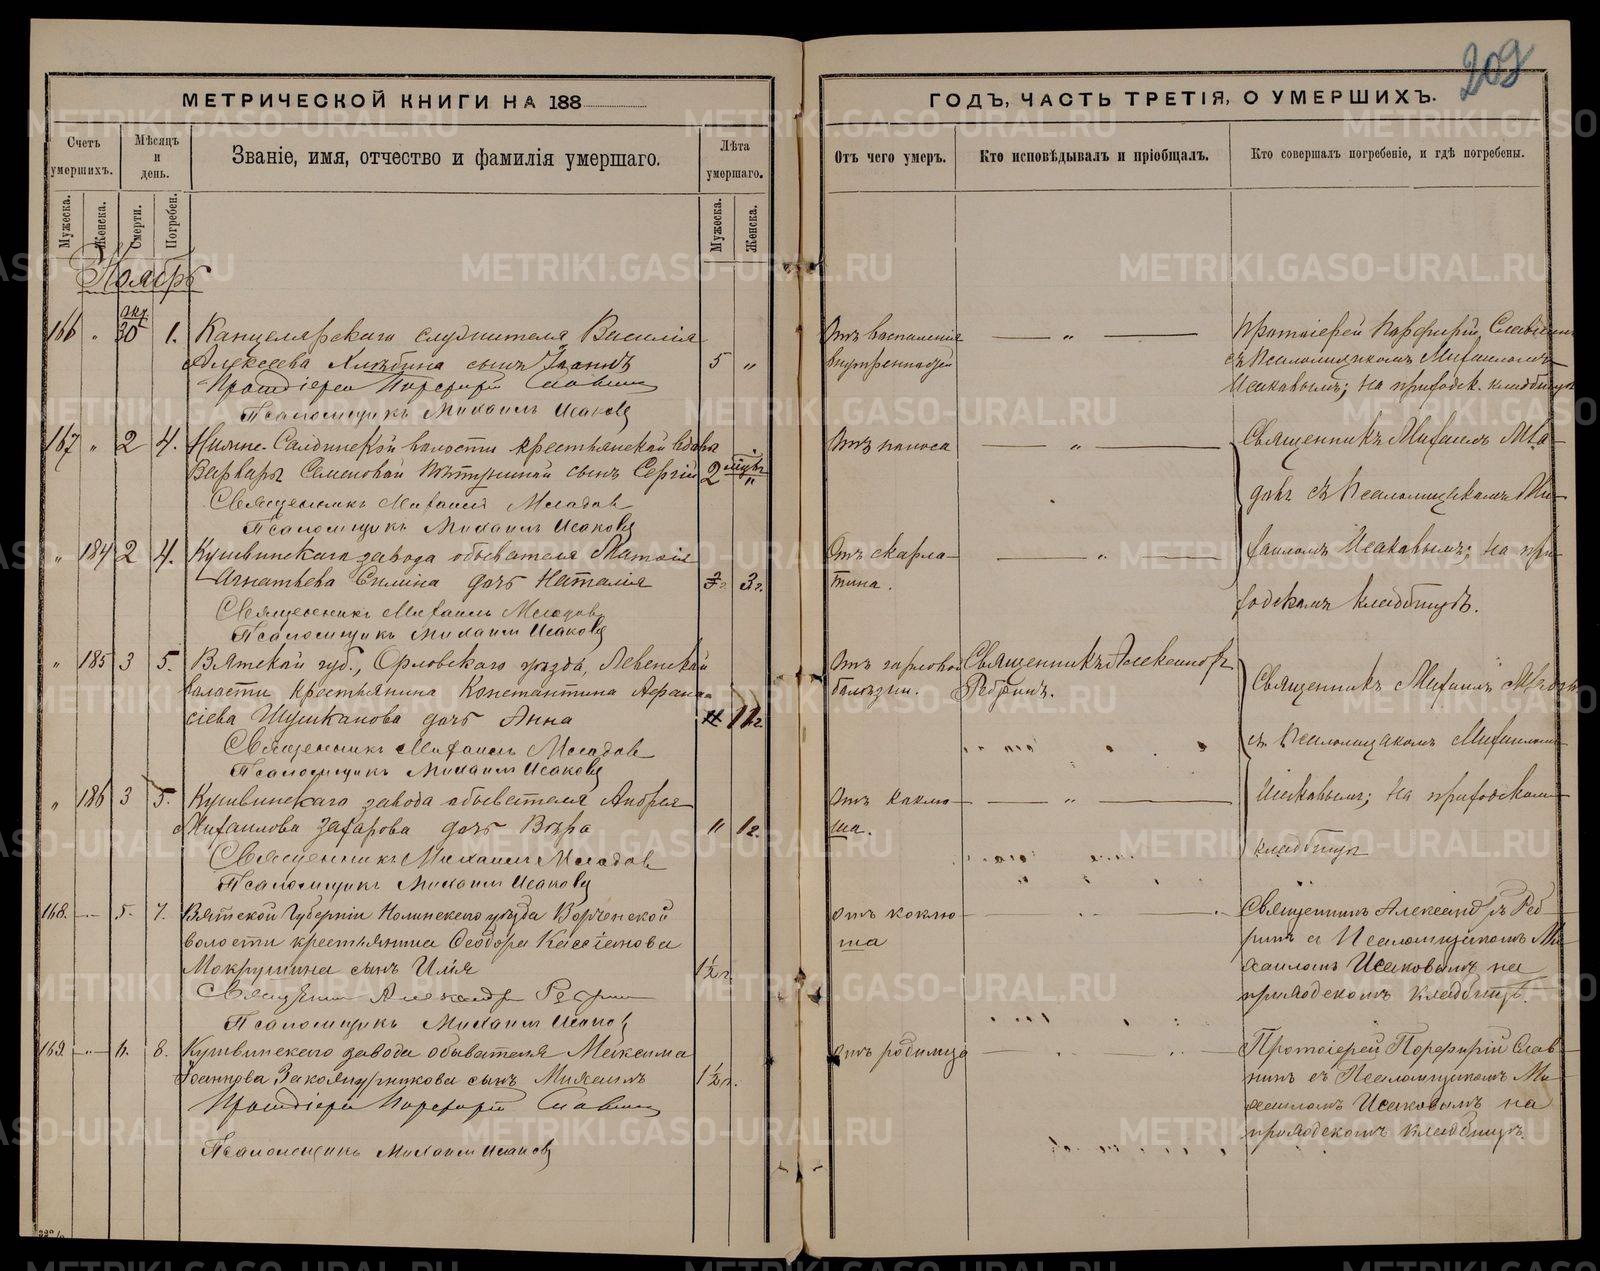 209
МЕТРИЧЕСКОЙ КНИГИ НА 188
ГОДЪ, ЧАСТЬ ТРЕТІЯ, О УМЕРШИХЪ.
Счетъ умершихъ.
Мѣсяцъ и день.
Званіе, имя, отчество и фамилія умершаго.
Лѣта умершаго.
Отъ чего умеръ.
Кто исповѣдывалъ и пріобщалъ.
Кто совершалъ погребеніе, и гдѣ погребены.
Мужеска.
Женска.
Смерти.
Погребен.
Мужеска.
Женска.
Ноябрь
окт.
166 " 30 1. Канцелярскаго служителя Василія
Алексеева сынъ Іоаннъ 5 "
Протоіерей Порфирій Славнинъ
Псаломщикъ Михаилъ Исаковъ
Отъ воспаленія
— " —
Протоіерей Порфирій Славнин
съ Псаломщикомъ Михаиломъ
Исаковымъ; на приходск. кладбищѣ
167 " 2 4. Нижне-Салдинской волости крестьянской вдовы
Варвары Семеновой сынъ Сергій 2 мѣсц. "
Священникъ Михаилъ Меладов
Псаломщикъ Михаилъ Исаковъ
Отъ поноса
— " —
Священникъ Михаилъ Мѣла-
довъ съ Псаломщикомъ Ми-
хаиломъ Исаковымъ; на при-
ходскомъ кладбищѣ.
" 184 2 4. Кушвинскаго завода обывателя
Игнатьева Силина дочь Наталія 3г.
Священникъ Михаилъ Меладовъ
Псаломщикъ Михаилъ Исаковъ
Отъ скарла-
тина.
— " —
" 185 3 5. Вятской губ., Орловскаго уѣзда, Левенской
волости крестьянина Константина Афана-
сіева Шушканова дочь Анна 11г.
Священникъ Михаилъ Меладов
Псаломщикъ Михаилъ Исаковъ
Отъ горловой
болѣзни.
Священникъ Александръ
Ребринъ.
Священникъ Михаилъ Мѣладовъ
съ Псаломщикомъ Михаиломъ
Исаковымъ; на приходскомъ
кладбищѣ
" 186 3 5. Кушвинскаго завода обывателя Андрея
Михаилова Захарова дочь Вѣра " 1г.
Священникъ Михаилъ Меладов
Псаломщикъ Михаилъ Исаковъ
Отъ коклю-
ша.
— " —
168. — 5. 7. Вятской Губерніи Нолинскаго уѣзда Ворченской
волости крестьянина Ѳеодора Кассіанова
Мокрушина сынъ Илія 1½ г.
Священникъ Александръ Ребрин
Псаломщикъ Михаилъ Исаковъ
отъ коклю-
ша
Священникъ Александръ Реб-
ринъ съ Псаломщикомъ Ми-
хаиломъ Исаковымъ на
приходскомъ кладбищѣ.
169. —"— 6. 8. Кушвинскаго завода обывателя Максима
Іоаннова Закожурникова сынъ Михаилъ 1½ г.
Протоіерей Порфирій Славнин
Псаломщикъ Михаилъ Исаковъ
отъ родимца
Протоіерей Порфирій Слав-
нинъ съ Псаломщикомъ Ми-
хаиломъ Исаковымъ на
приходскомъ кладбищѣ.
METRIKI.GASO-URAL.RU